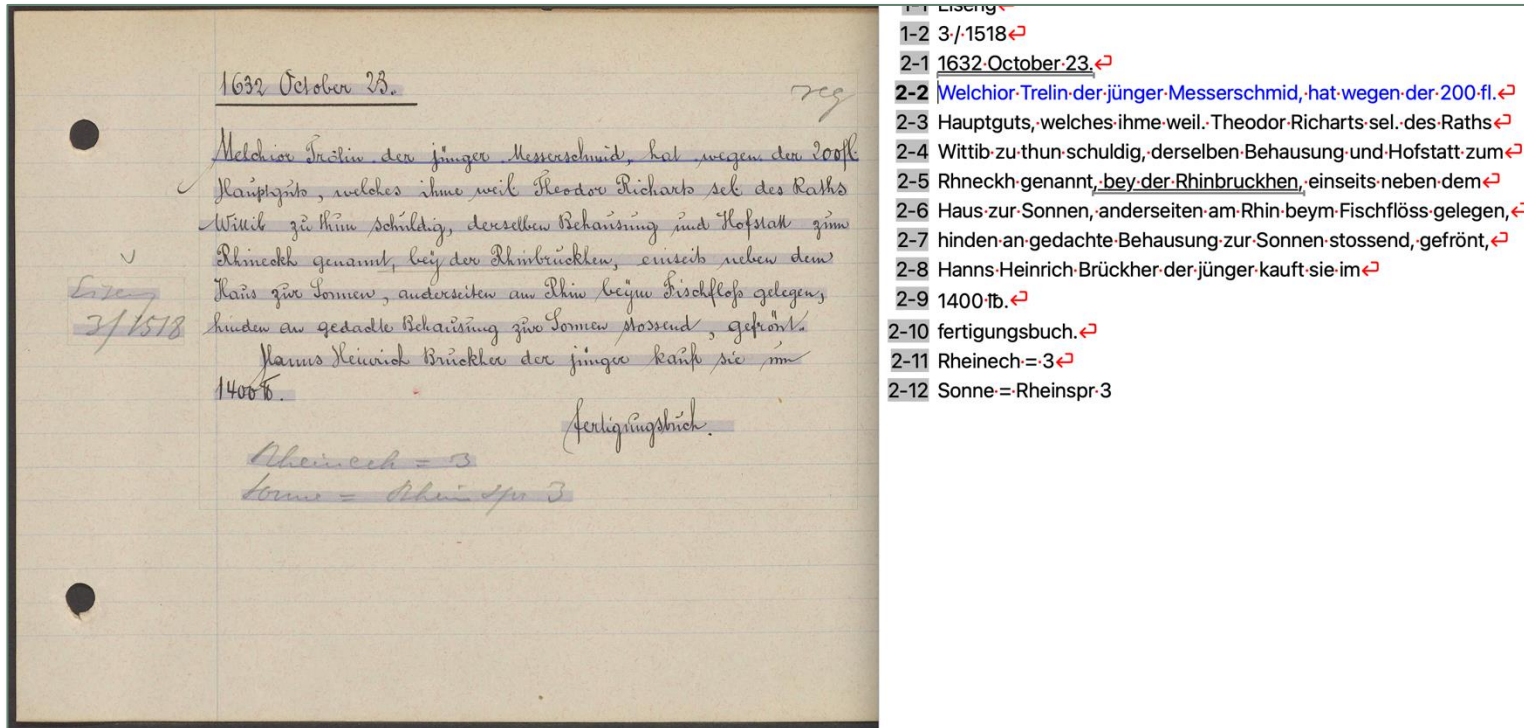 1632 October 23.
reg
Melchior Trölin der jünger Messerschmid, hat wegen der 200 fl.
Hauptguts, welches ihme weil Theodor Richarts sel. des Raths
Wittib zu thun schuldig, derselben Behausung und Hofstatt zum
Rhineckh genannt, bey der Rhinbruckhen, einseits neben dem
Haus zur Sonnen, anderseiten am Rhin beym Fischfloss gelegen,
hinden an gedachte Behausung zur Sonnen stossend, gefrönt.
Hanns Heinrich Bruckher der jünger kauft sie um
1400 ℔.
fertigungsbuch.
Eiseng
3/1518
Rheinech = 3
Sonne = Rheinspr 3
1-1 Eiseng
1-2 3 / 1518
2-1 1632 October 23.
2-2 Welchior Trelin der jünger Messerschmid, hat wegen der 200 fl.
2-3 Hauptguts, welches ihme weil. Theodor Richarts sel. des Raths
2-4 Wittib zu thun schuldig, derselben Behausung und Hofstatt zum
2-5 Rhneckh genannt, bey der Rhinbruckhen, einseits neben dem
2-6 Haus zur Sonnen, anderseiten am Rhin beym Fischflöss gelegen,
2-7 hinden an gedachte Behausung zur Sonnen stossend, gefrönt,
2-8 Hanns Heinrich Brückher der jünger kauft sie im
2-9 1400 ℔.
2-10 fertigungsbuch.
2-11 Rheinech = 3
2-12 Sonne = Rheinspr 3